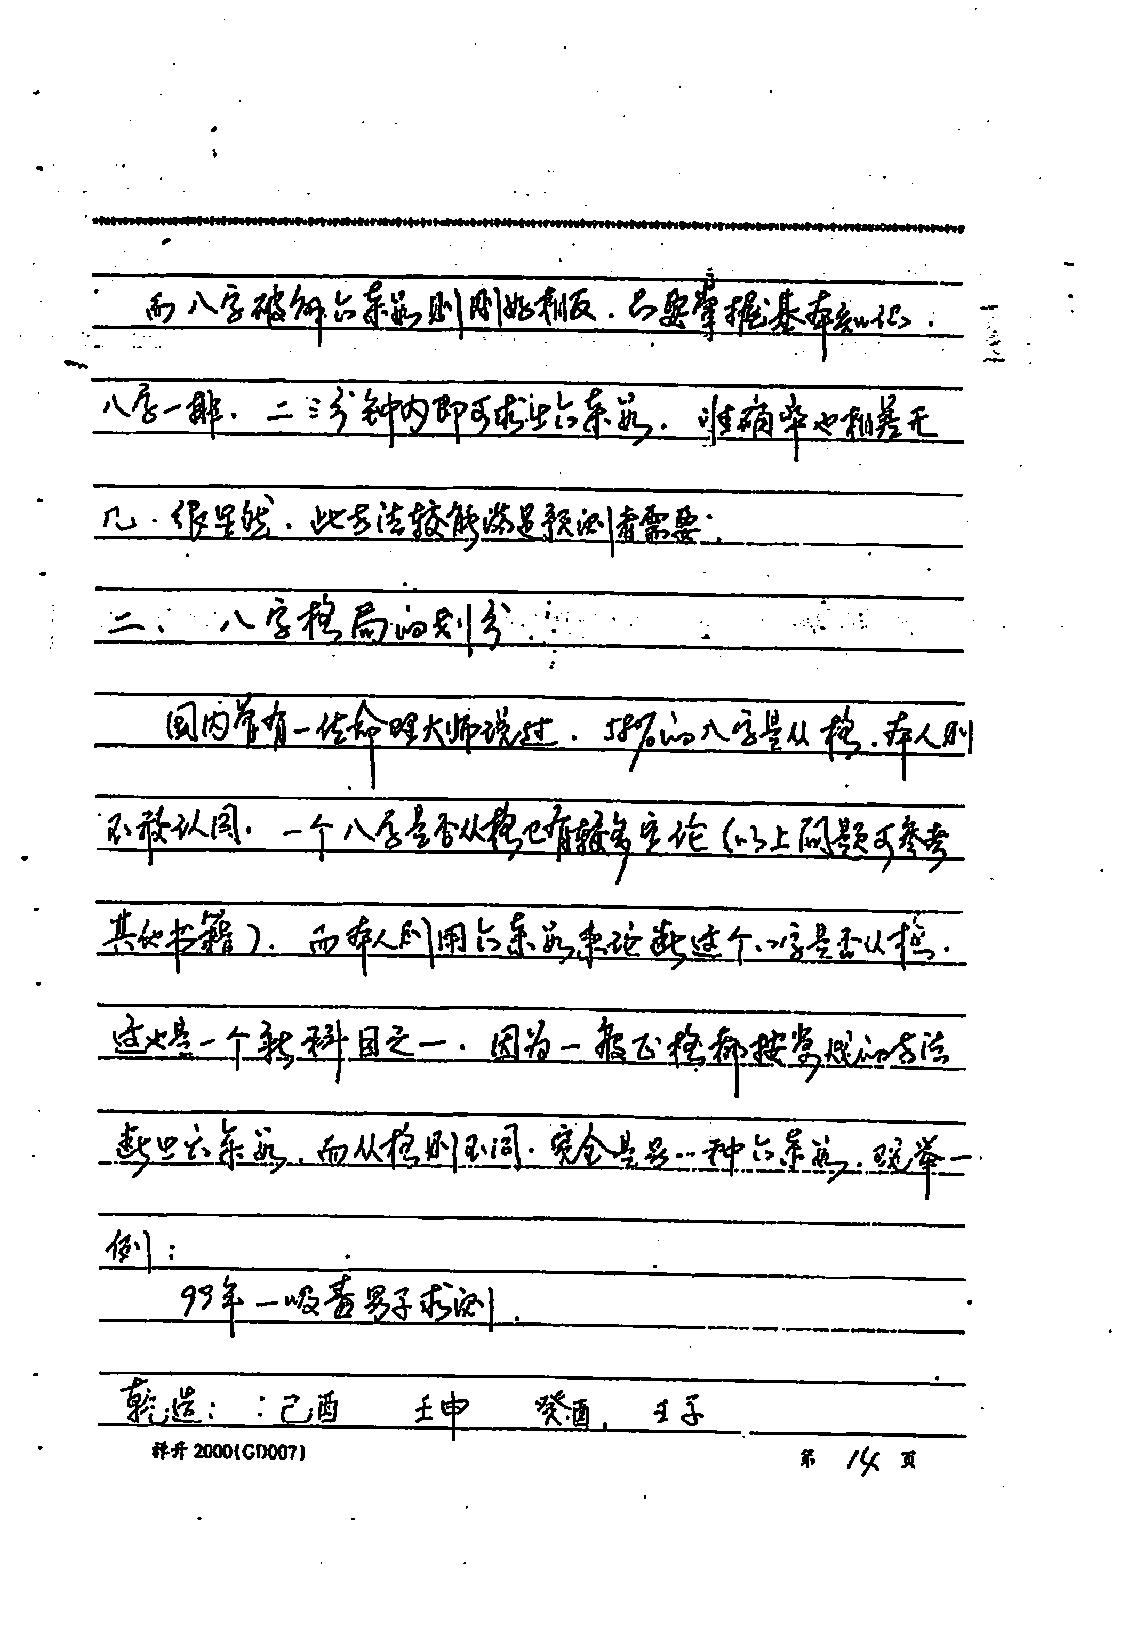 而八字破解六亲数则刚好相反.只要掌握基本知识.
八字一排.二三分钟内即可求出六亲数.准确率也相差无
几.很显然.此方法较能满足预测者需要.
二、八字格局的划分
国内曾有一位命理大师说过.58%的八字是从格.本人则
不敢认同.一个八字是否从格已有较多定论(以上问题可参考
其他书籍).而本人则用六亲数来论断这个八字是否从格.
这也是一个新科目之一.因为一般正格都按常规的方法
断出六亲数.而从格则不同.完全是另一种六亲数.现举一
例:
99年一吸毒男子求测.
乾造: 己酉 壬申 癸酉 壬子
祥升2000(GD007)
第 14 页